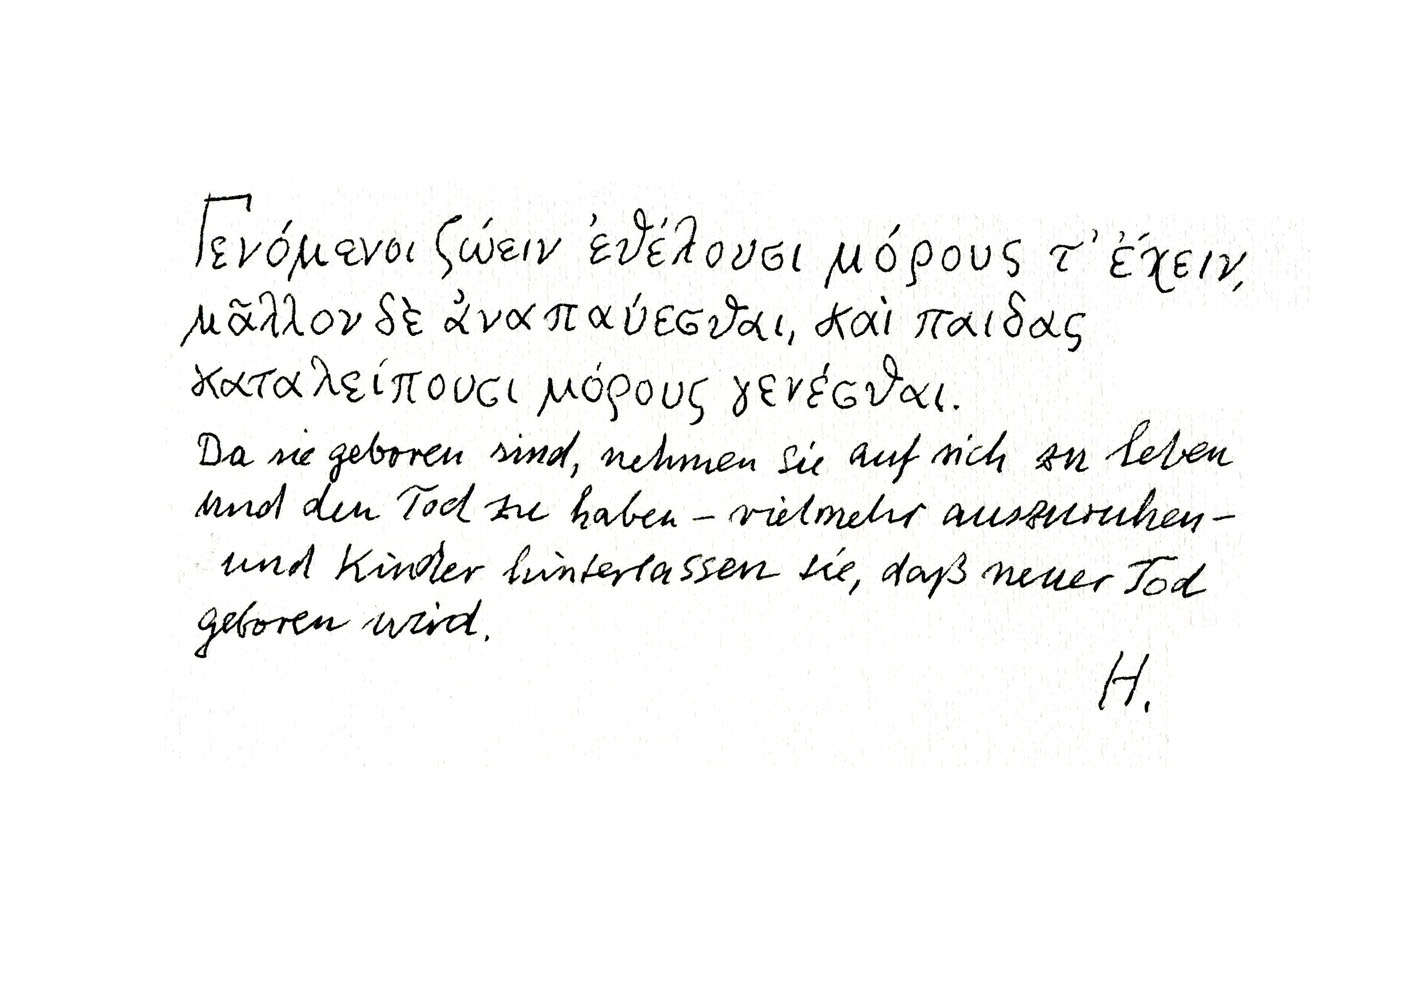 Γενόμενοι ζώειν ἐθέλουσι μόρους τ' ἔχειν,
μᾶλλον δὲ ἀναπαύεσθαι, καὶ παιδας
καταλείπουσι μόρους γενέσθαι.
Da sie geboren sind, nehmen sie auf sich zu leben
und den Tod zu haben – vielmehr auszuruhen –
und Kinder hinterlassen sie, daß neuer Tod
geboren wird.
H.